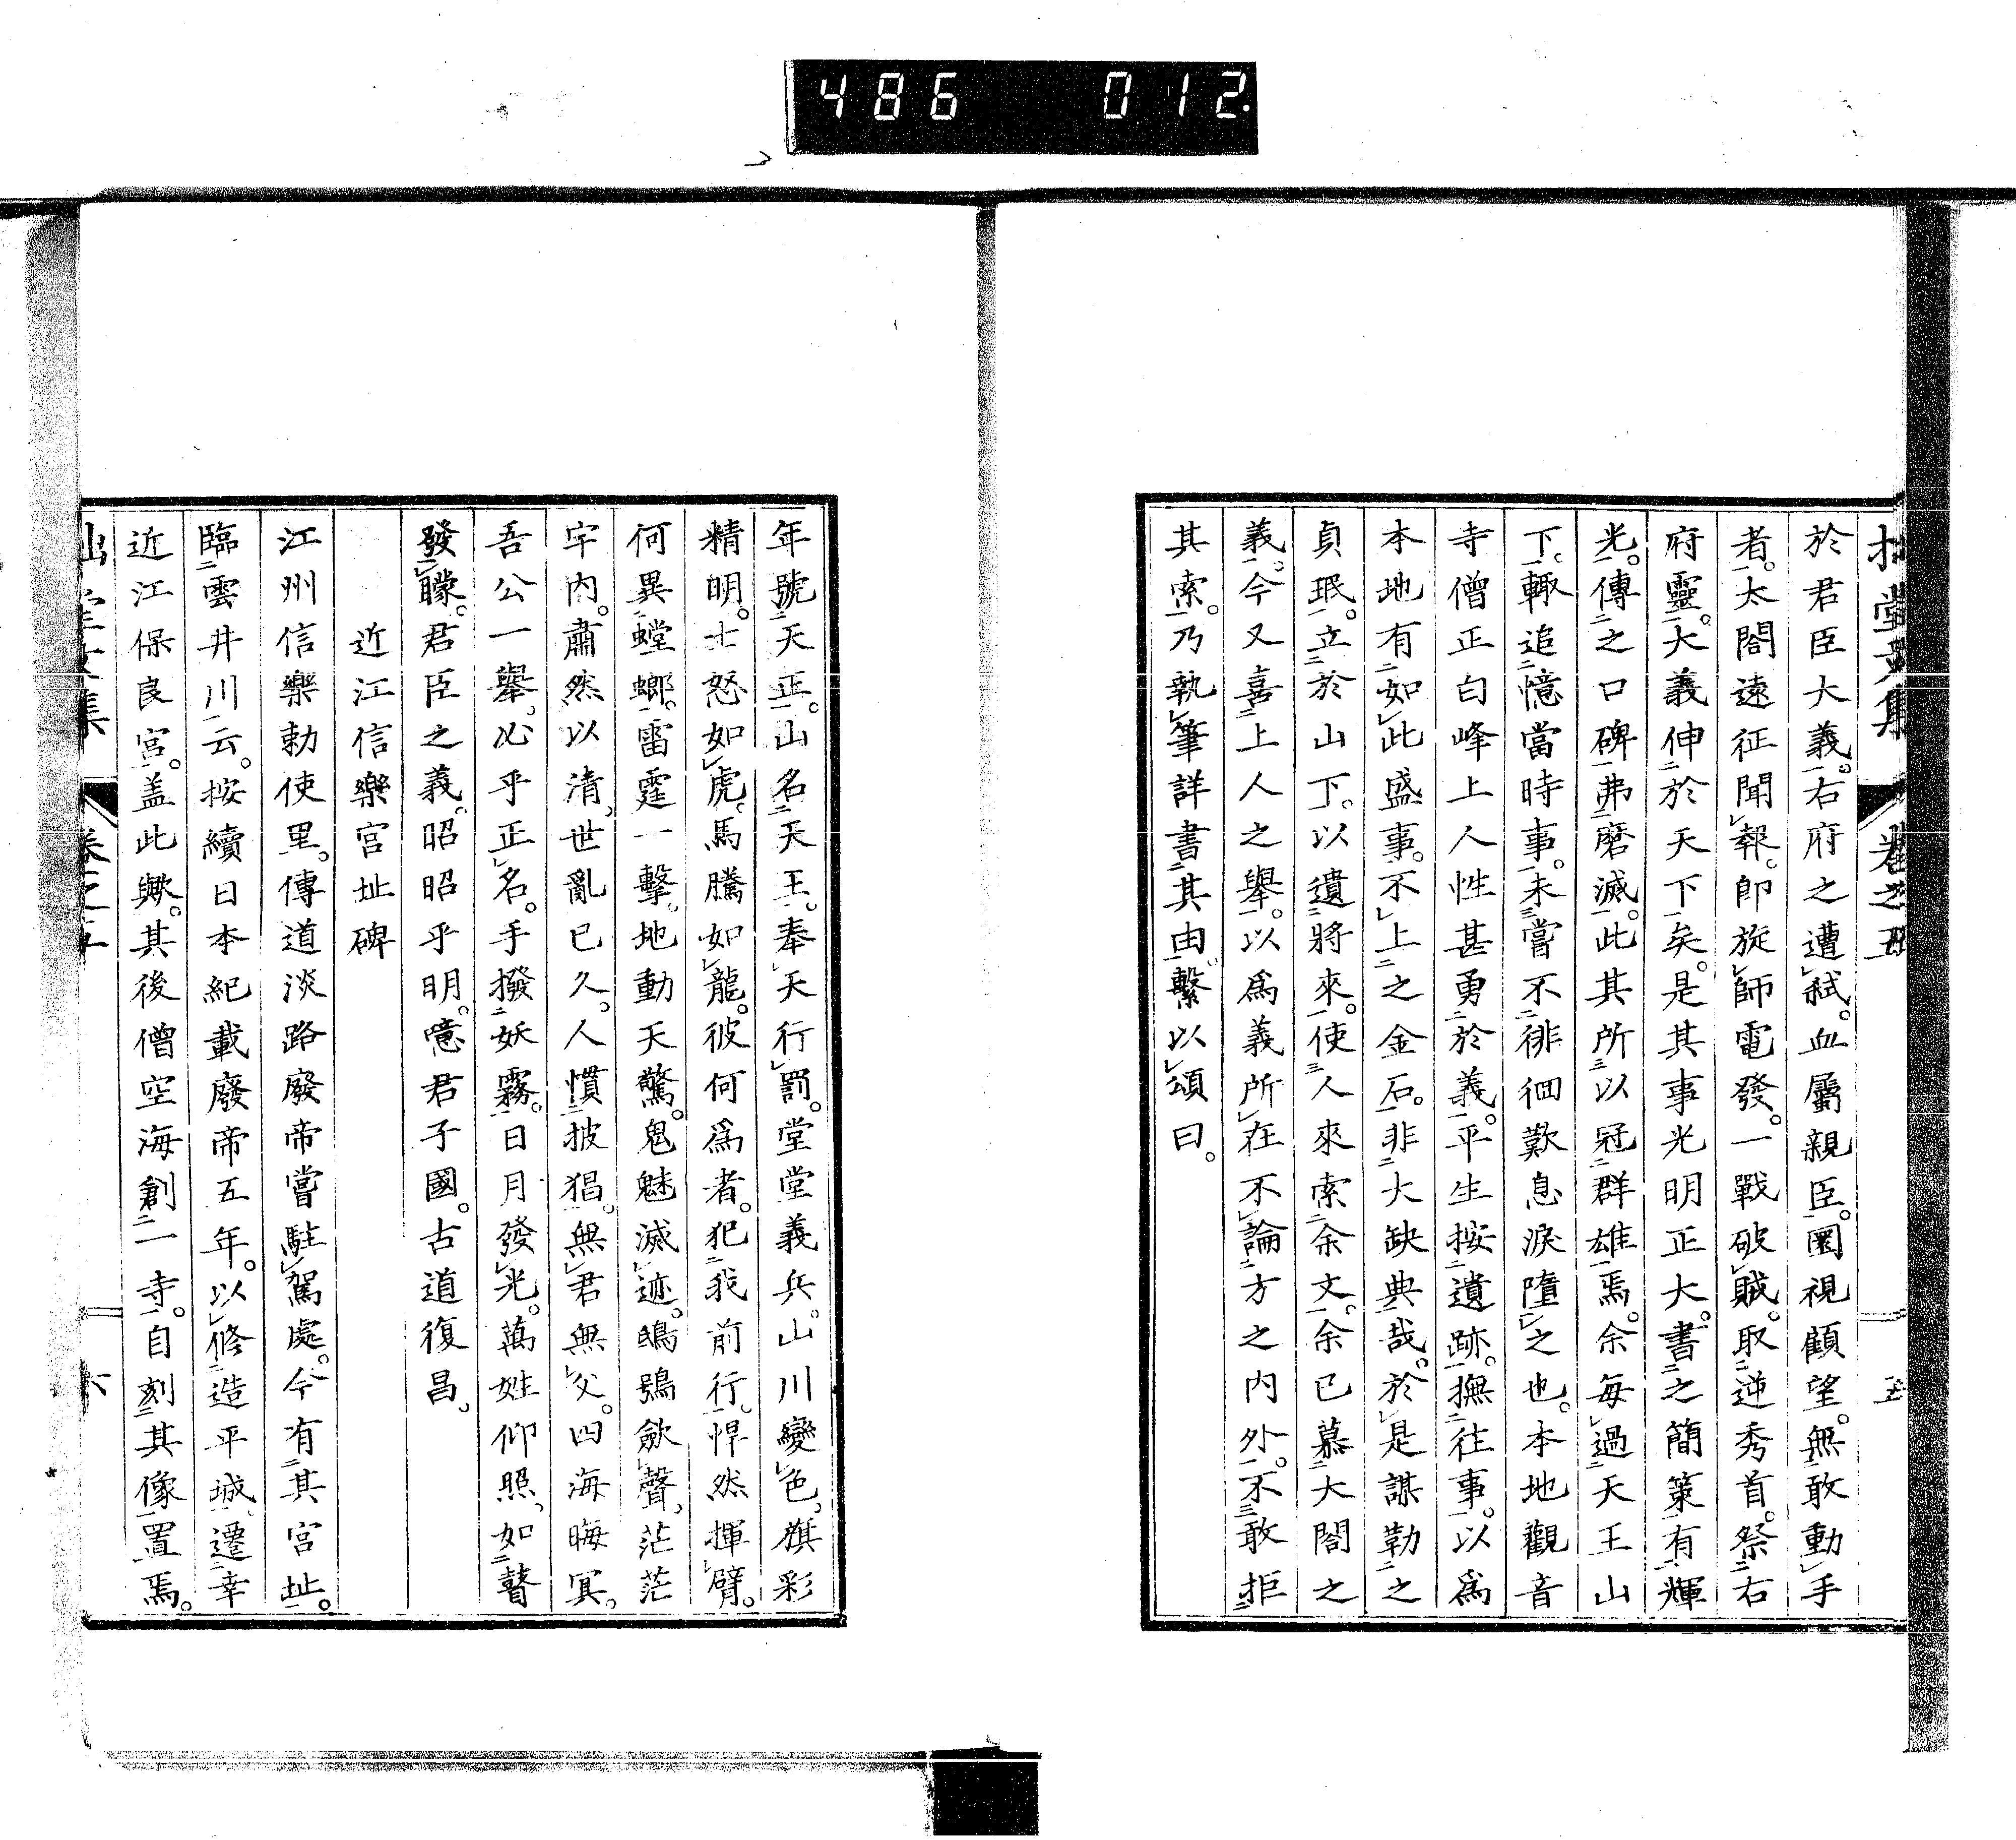 486 012
拙堂文集 卷之五 五
於君臣大義。右府之遭弒。血屬親臣。圜視顧望。無敢動手
者。太閤遠征聞報。即旋師電發。一戰破賊。取逆秀首。祭右
府靈。大義伸於天下矣。是其事光明正大。書之簡策有輝
光。傳之口碑弗磨滅。此其所以冠群雄焉。余每過天王山
下。輒追憶當時事。未嘗不徘徊歎息淚墮之也。本地觀音
寺僧正白峰上人性甚勇於義。平生按遺跡。撫往事。以為
本地有如此盛事。不上之金石。非大缺典哉。於是謀勒之
貞珉。立於山下。以遺將來。使人來索余文。余已慕大閤之
義。今又喜上人之舉。以為義所在不論方之內外。不敢拒
其索。乃執筆詳書其由。繫以頌曰。
年號天正。山名天王。奉天行罰。堂堂義兵。山川變色、旗彩
精明。士怒如虎、馬騰如龍。彼何為者。犯我前行。悍然揮臂。
何異螳螂。雷霆一擊、地動天驚。鬼魅滅迹。鴟鴞歛聲、茫茫
宇內。肅然以清、世亂已久、人慣披猖。無君無父。四海晦冥。
吾公一舉、必乎正名。手撥妖霧。日月發光。萬姓仰照、如瞽
發矇。君臣之義。昭昭乎明。噫君子國。古道復昌、
近江信樂宮址碑
江州信樂勅使里。傳道淡路廢帝嘗駐駕處。今有其宮址。
臨雲井川云。按續日本紀載廢帝五年。以修造平城、遷幸
近江保良宮。盖此歟。其後僧空海創一寺。自刻其像置焉。
拙堂文集 卷之五 六